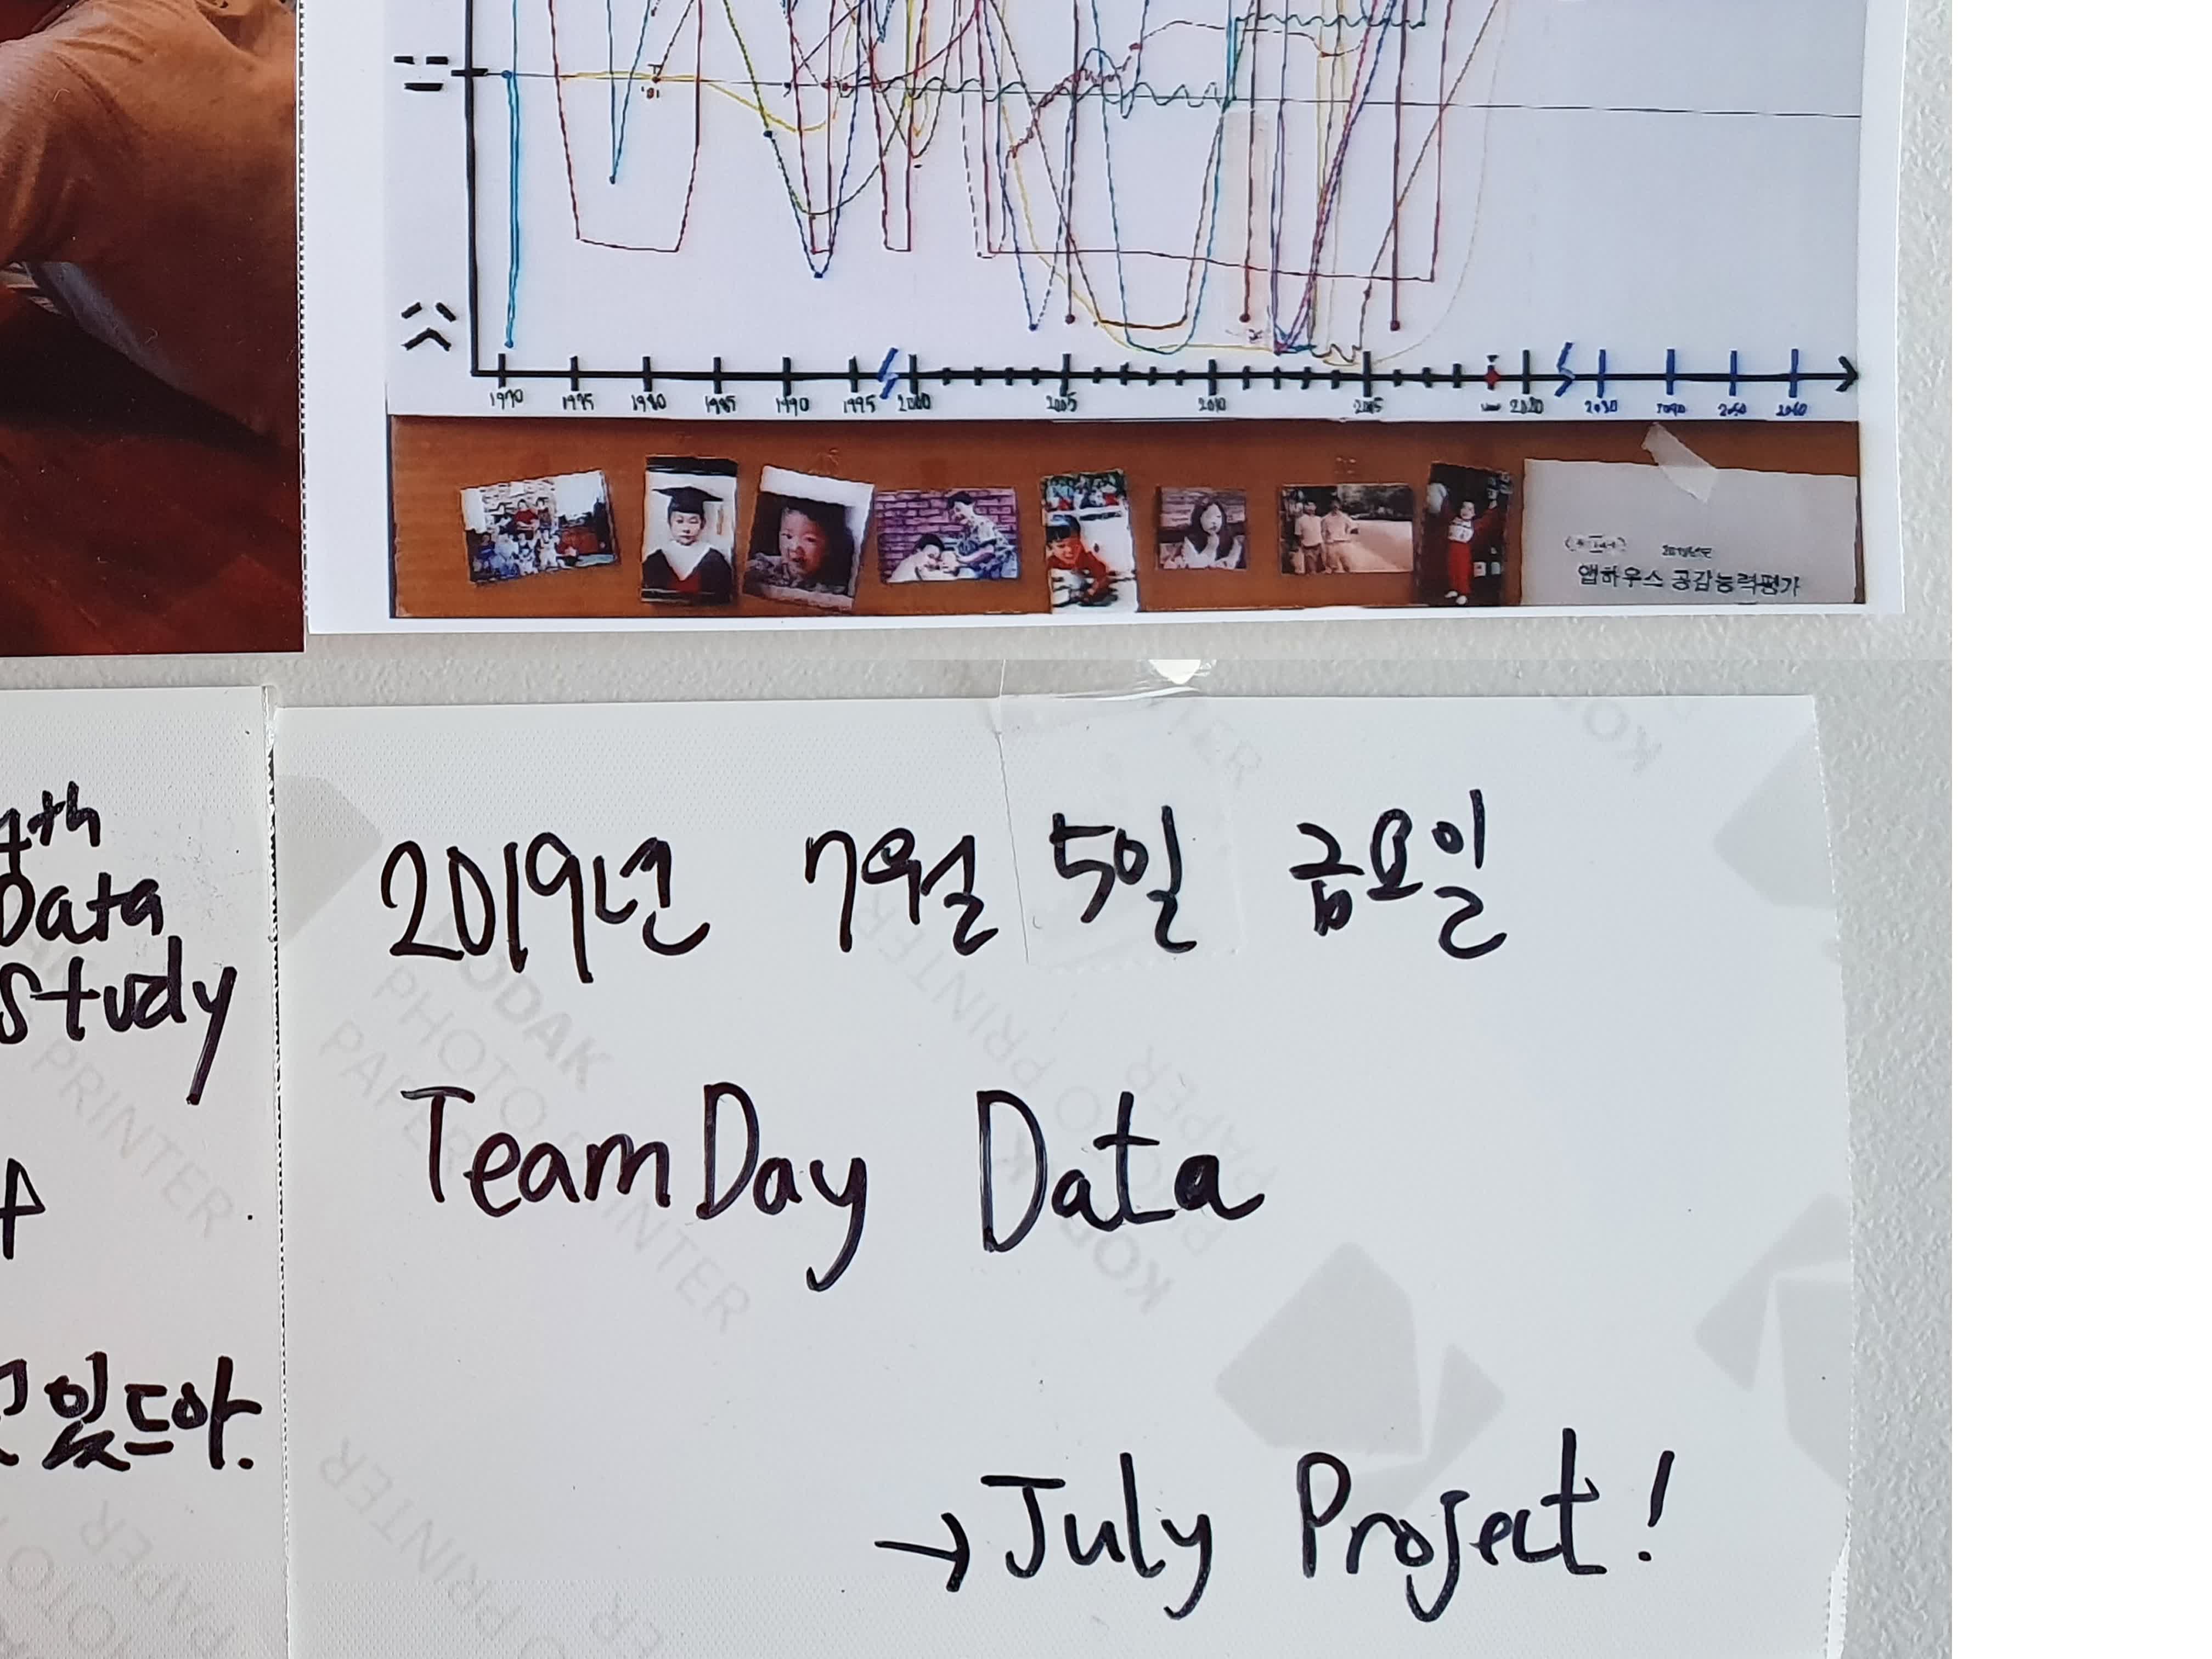 1970 1975 1980 1985 1990 1995 2000 2005 2010 2015 now 2020 2030 2040 2050 2060
2019년도
앱하우스 공감능력평가
4th
Data
Study
있드아.
2019년 7월 5일 금요일
TeamDay Data
→ July Project!
KODAK
PHOTO PRINTER
PAPER